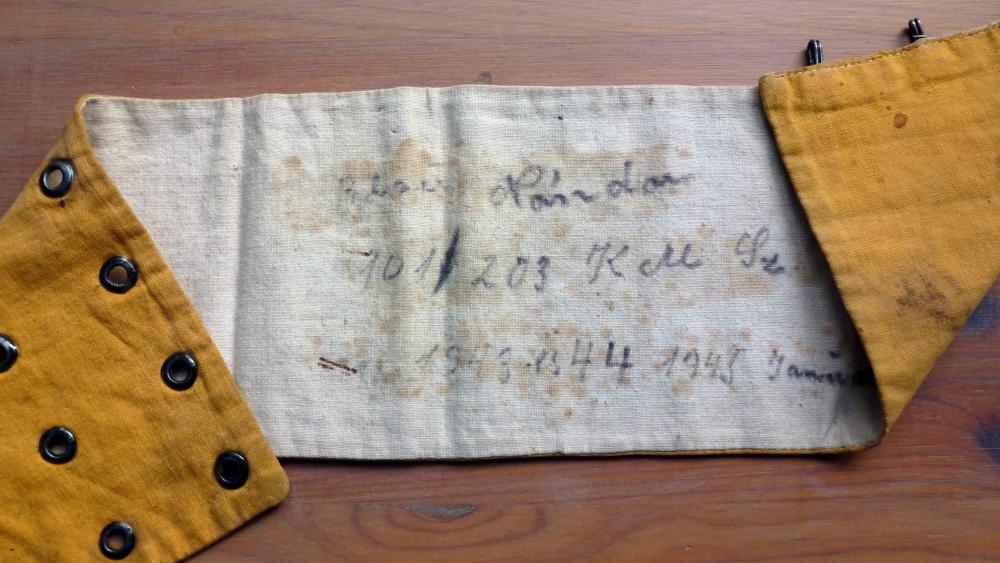 Nándor
101/203 K M Sz
1943 1944 1945 Januá